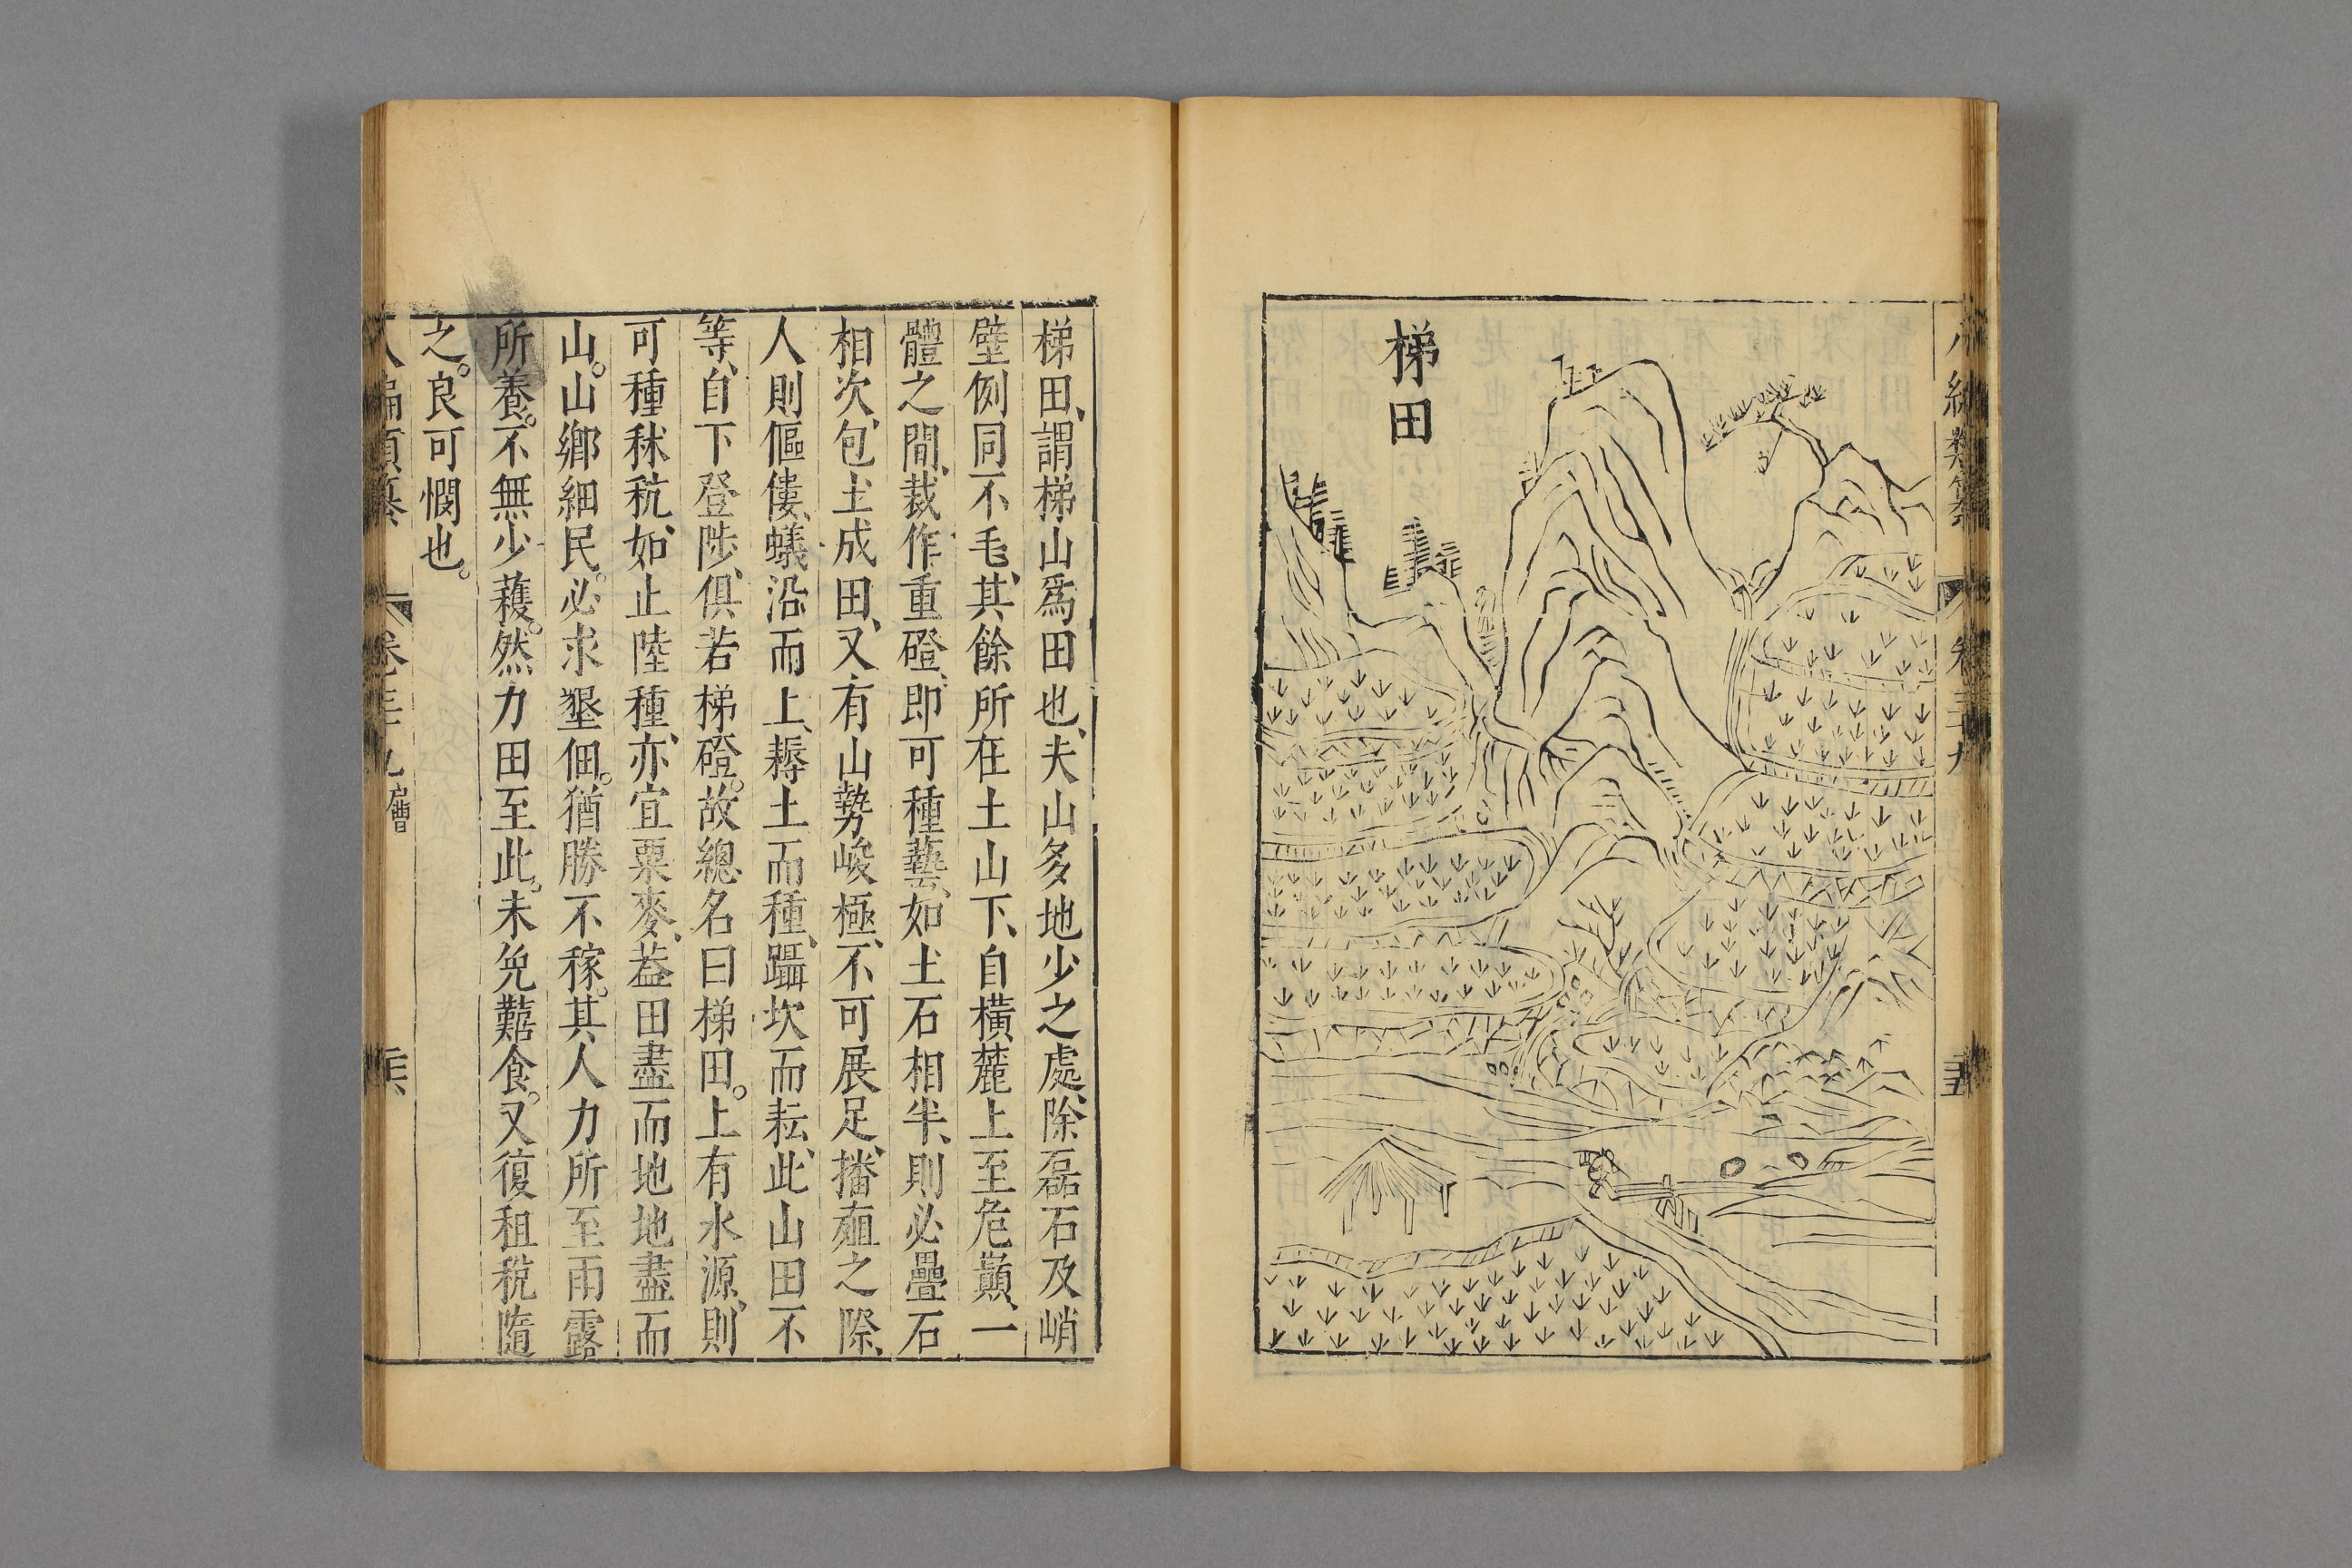 梯田
編類纂 卷三十九 三十五
梯田、謂梯山爲田也、夫山多地少之處、除磊石及峭
壁例同不毛、其餘所在土山下、自橫麓上至危巔、一
體之間、裁作重磴、即可種藝、如土石相半、則必疊石
相次、包土成田、又有山勢峻極、不可展足、播殖之際、
人則傴僂、蟻沿而上、耨土而種、躡坎而耘、此山田不
等、自下登陟、俱若梯磴。故總名曰梯田。上有水源、則
可種秫秔、如止陸種、亦宜粟麥、葢田盡而地地盡而
山。山鄉細民。必求墾佃。猶勝不稼。其人力所至雨露
所養。不無少穫。然力田至此。未免囏食。又復租稅隨
之。良可憫也。
八編類纂 卷三十九